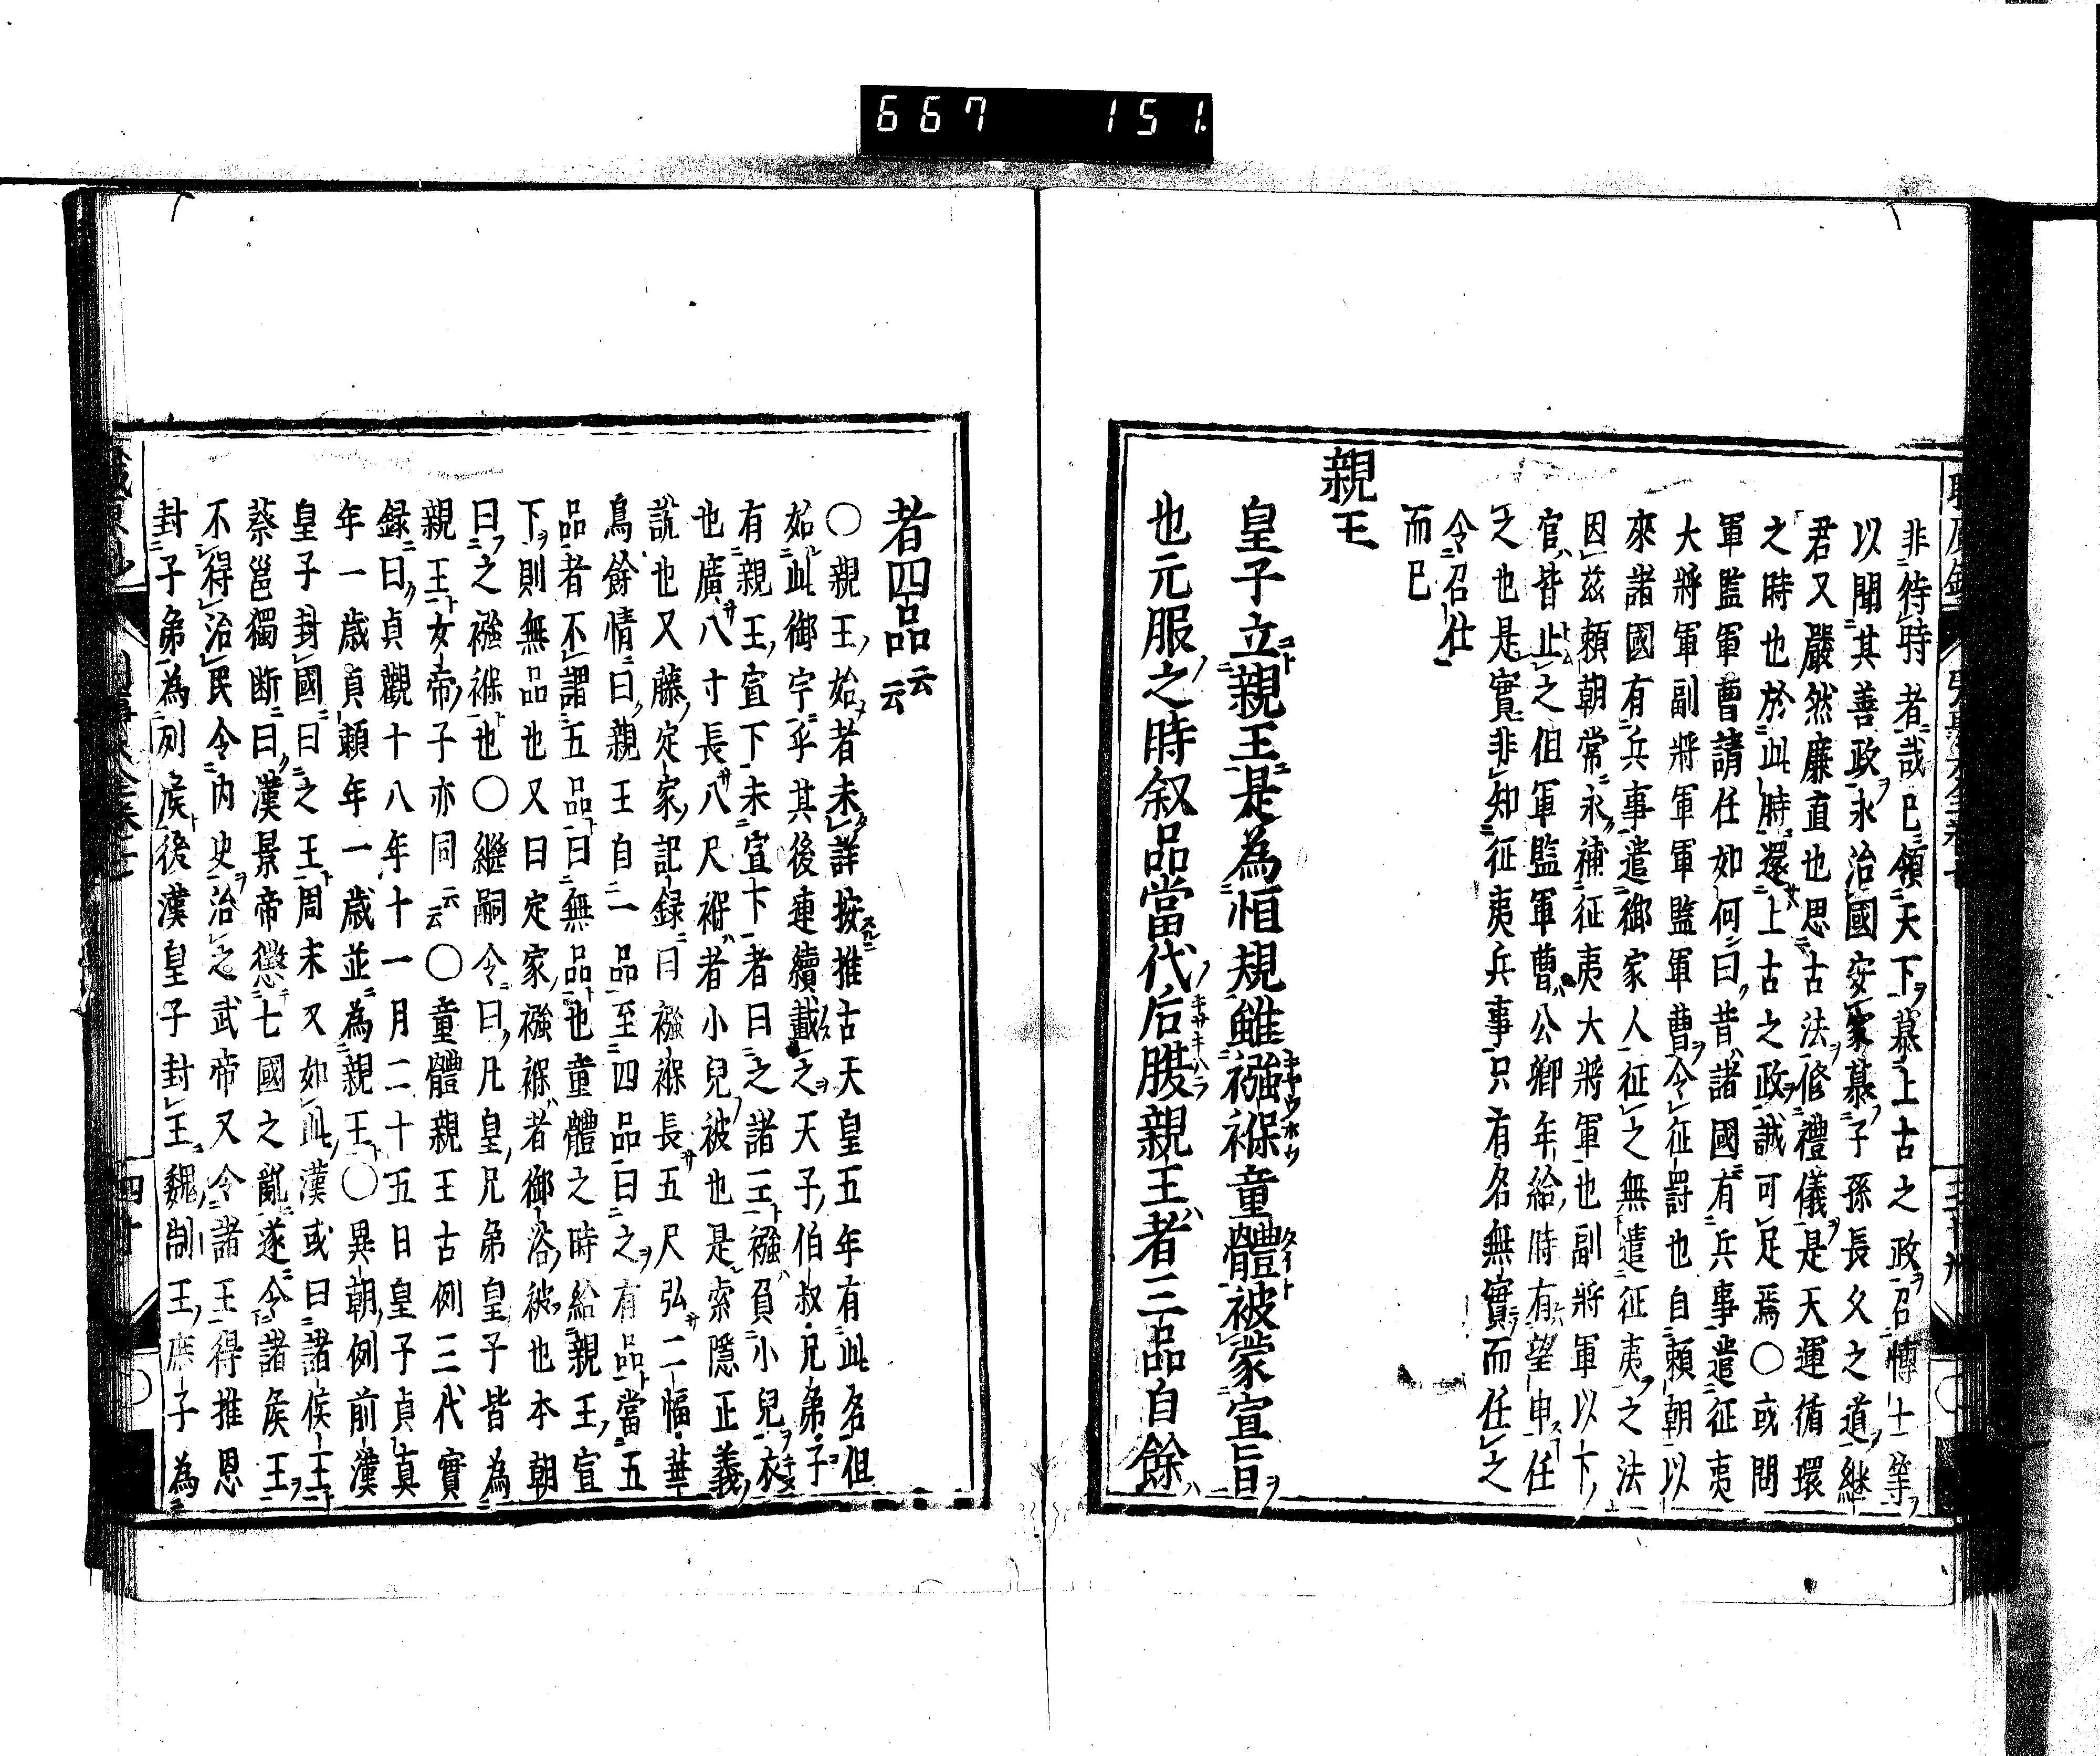 667 151
非待時者哉已領天下慕上古之政召博士等
以聞其善政永治國安家慕子孫長久之道継
君又嚴然廉直也思古法修禮儀是天運循環
之時也於此時還上古之政誠可足焉〇或問
軍監軍曹請任如何曰昔諸國有兵事遣征夷
大將軍副將軍軍監軍曹令征罸也自頼朝以
來諸國有兵事遣御家人征之無遣征夷之法
因茲頼朝常永補征夷大將軍也副將軍以下
官皆止之但軍監軍曹公卿年給時有望申任
之也是實非知征夷兵事只有名無實而任之
令召仕
而已
親王
皇子立親王是為恒規雖襁褓童體被蒙宣旨
也元服之時叙品當代后腹親王者三品自餘
者四品云云
〇親王始者未詳按推古天皇五年有此名但
如此御字乎其後連續載之天子伯叔兄弟子
有親王宣下未宣下者曰之諸王襁負小兒衣
也廣八寸長八尺褓者小兒被也是索隱正義
説也又藤定家記録曰襁褓長五尺弘二幅華
鳥餘情曰親王自一品至四品曰之有品當五
品者不謂五品曰無品也童體之時給親王宣
下則無品也又曰定家襁褓者御浴被也本朝
曰之襁褓也〇繼嗣令曰凡皇兄弟皇子皆為
親王女帝子亦同云云〇童體親王古例三代實
録曰貞觀十八年十一月二十五日皇子貞真
年一歳貞頼年一歳並為親王〇異朝例前漢
皇子封國曰之王周末又如此漢或曰諸侯王
蔡邕獨断曰漢景帝懲七國之亂遂令諸侯王
不得治民令内史治之武帝又令諸王得推恩
封子弟為列侯後漢皇子封王魏制王庶子為